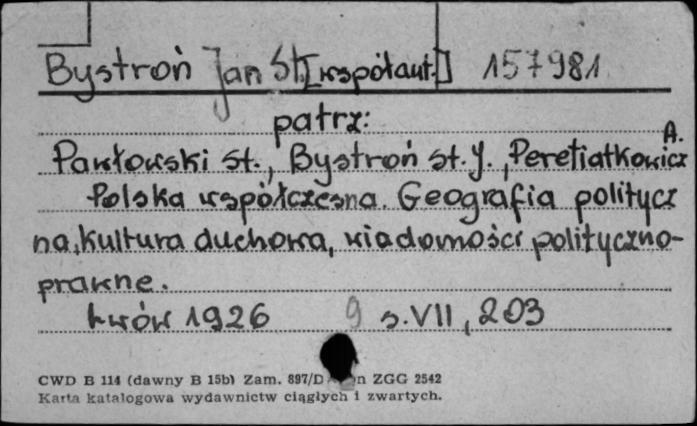 Bystroń Jan St. [współaut.] 157981
patrz:
Pawłowski St., Bystroń St. J., Peretiatkowicz A.
Polska współczesna. Geografia politycz
na, kultura duchowa, wiadomości polityczno-
prawne.
Lwów 1926 9 s. VII, 203
CWD B 114 (dawny B 15b) Zam. 897/D n ZGG 2542
Karta katalogowa wydawnictw ciągłych i zwartych.